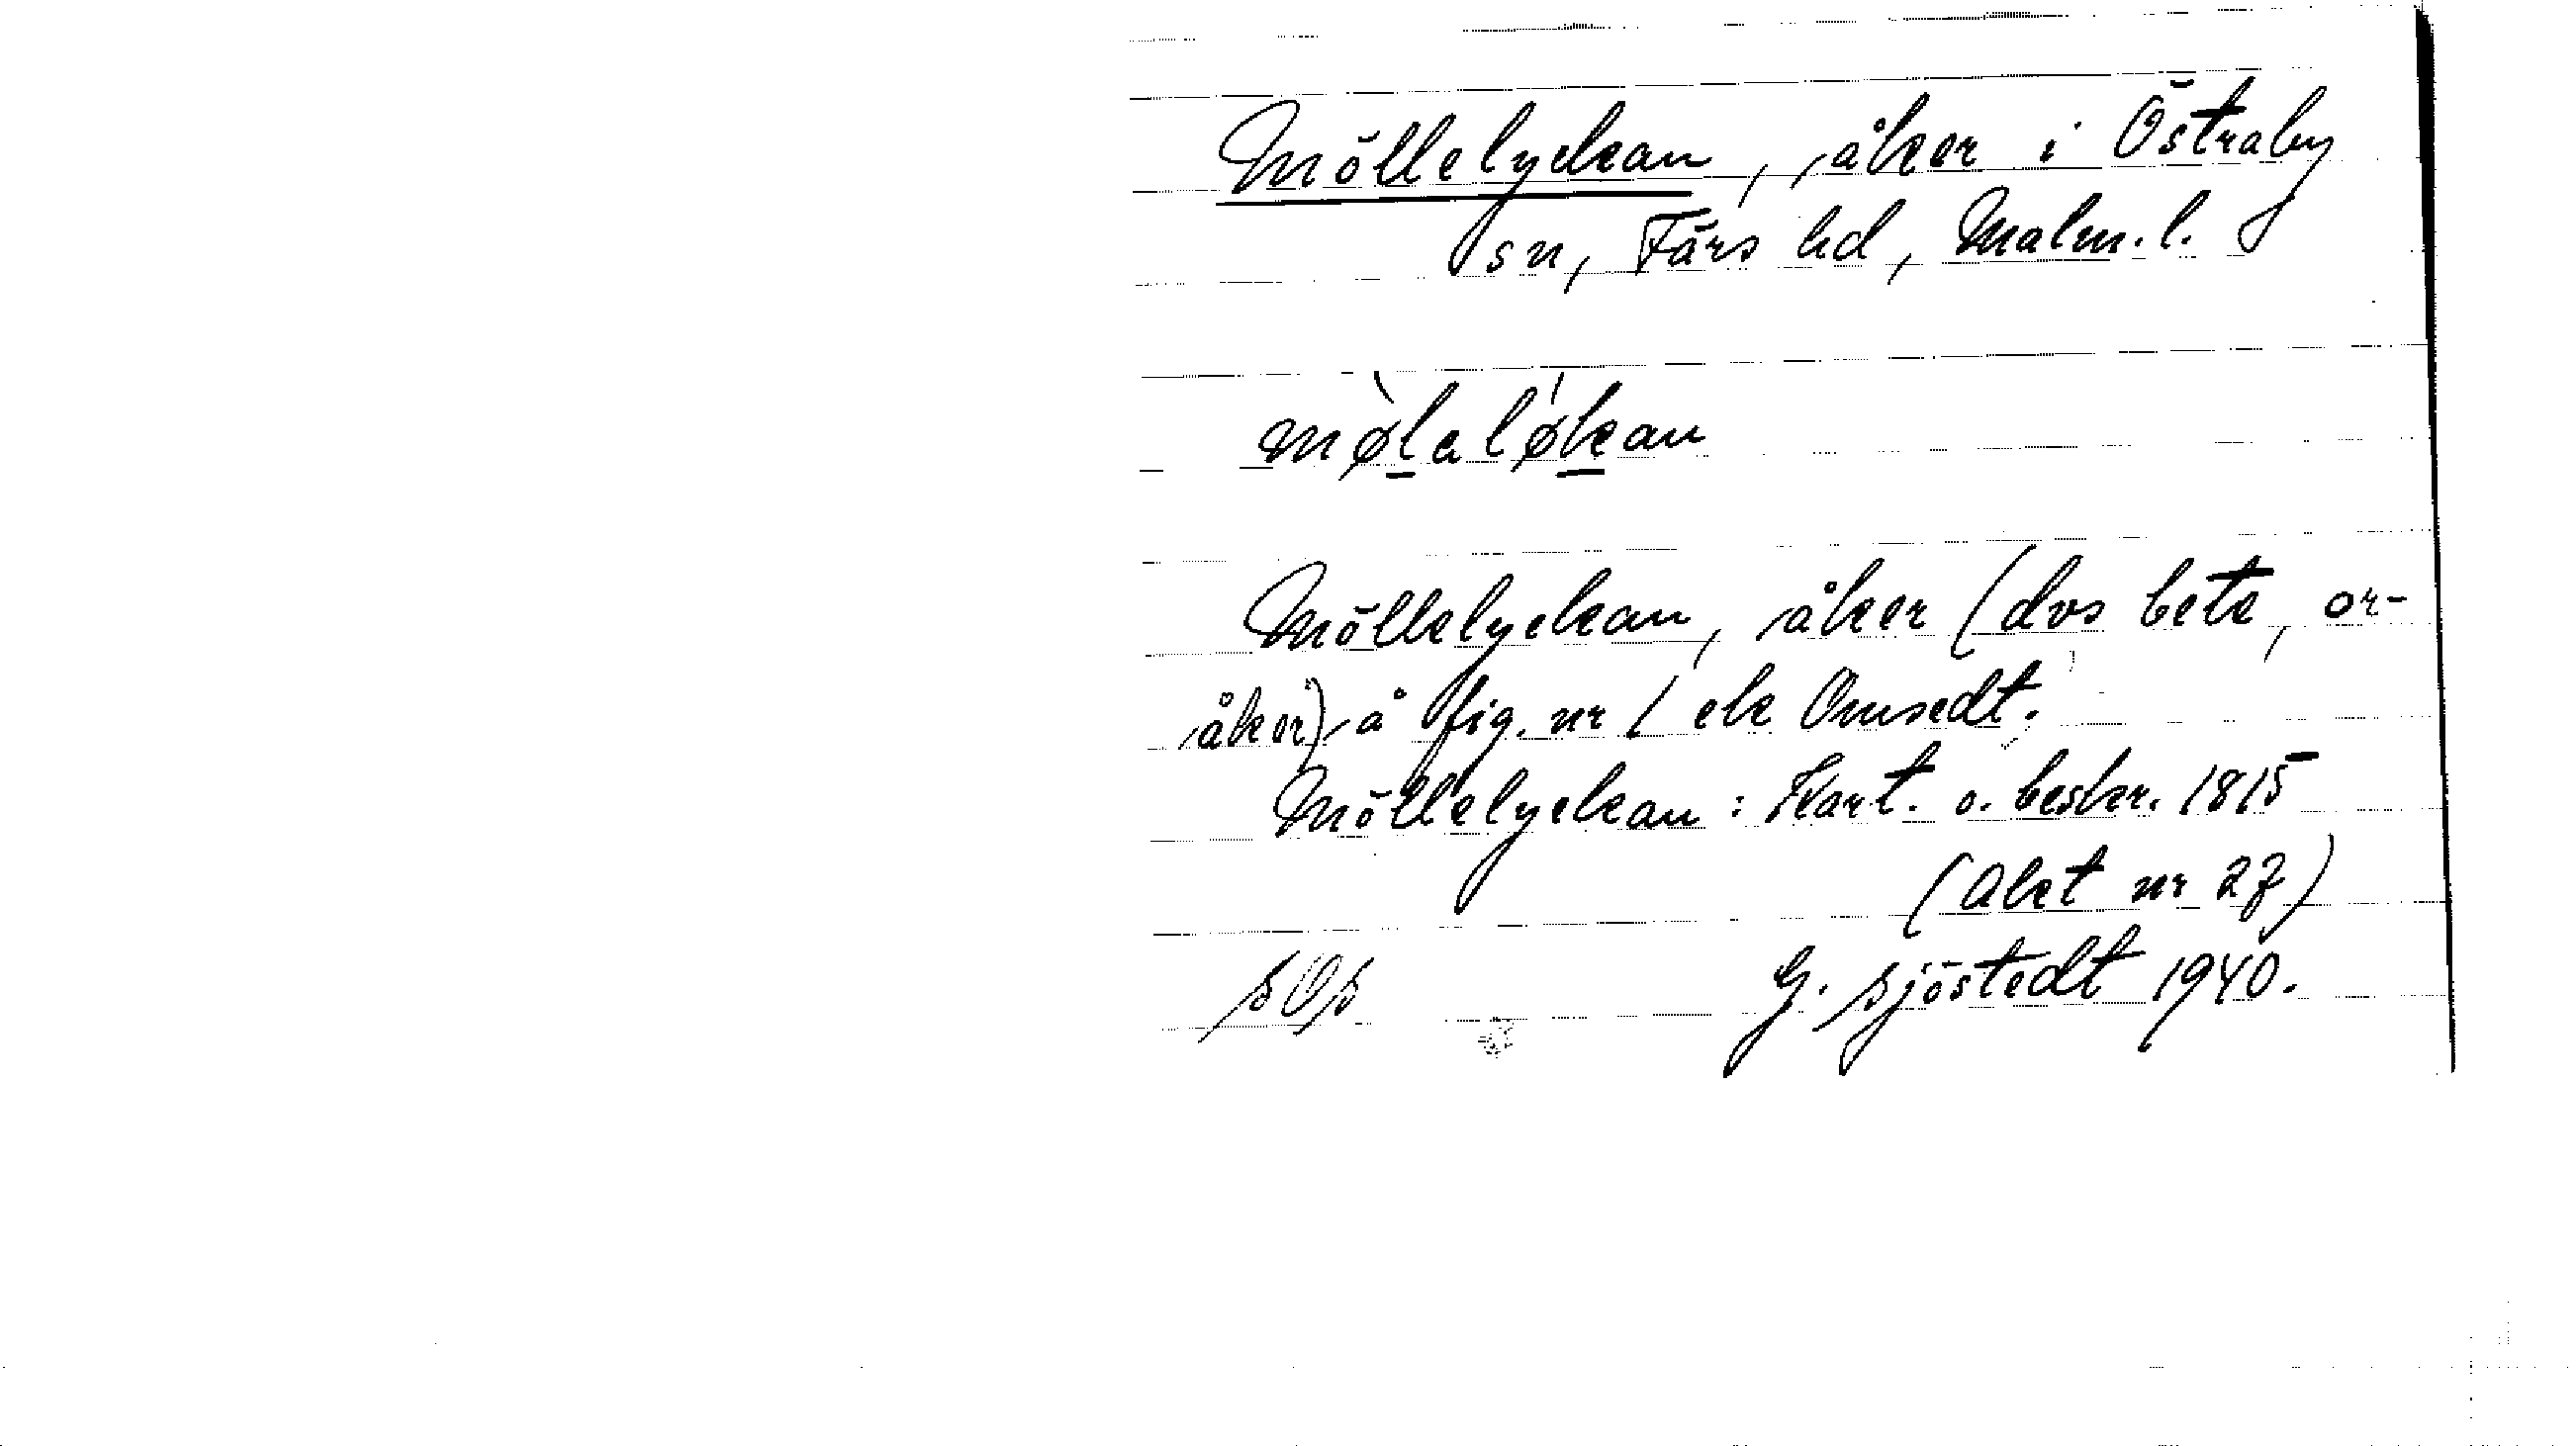 Möllelyckan, åker i Östraby
sn, Färs hd, Malm.l.
møleløkan
Möllelyckan, åker (dvs bete, or-
åker) å fig. nr 1 ek
Möllelyckan: Kart. o. beskr. 1815
(Akt nr 27)
G. Sjöstedt 1940.